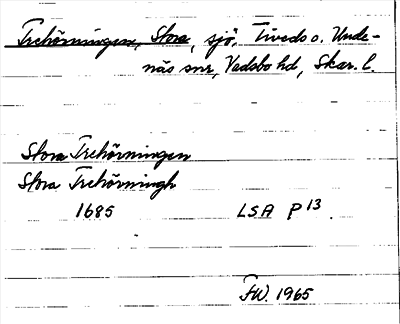 Trehörningen, Stora, sjö, Tiveds o. Unde-
näs snr, Vadsbo hd, Skar. l.
Stora Trehörningen
Stora Trehörningh
1685 LSA P 13.
F.W. 1965